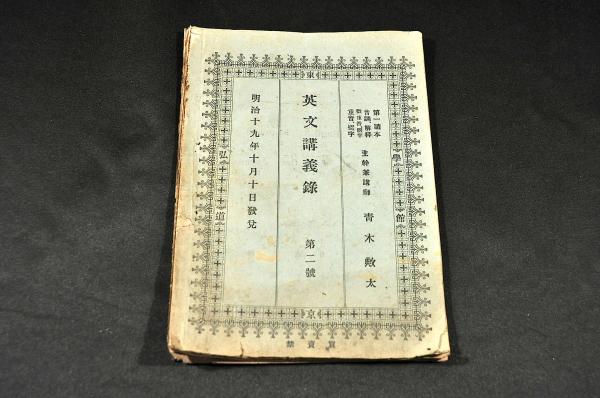 東
京
弘
道
學
館
第一讀本
音調、解釋
正音、綴字
主幹兼講師
青木敞太
英文講義錄
第二號
明治十九年十月十日發兌
禁賣買